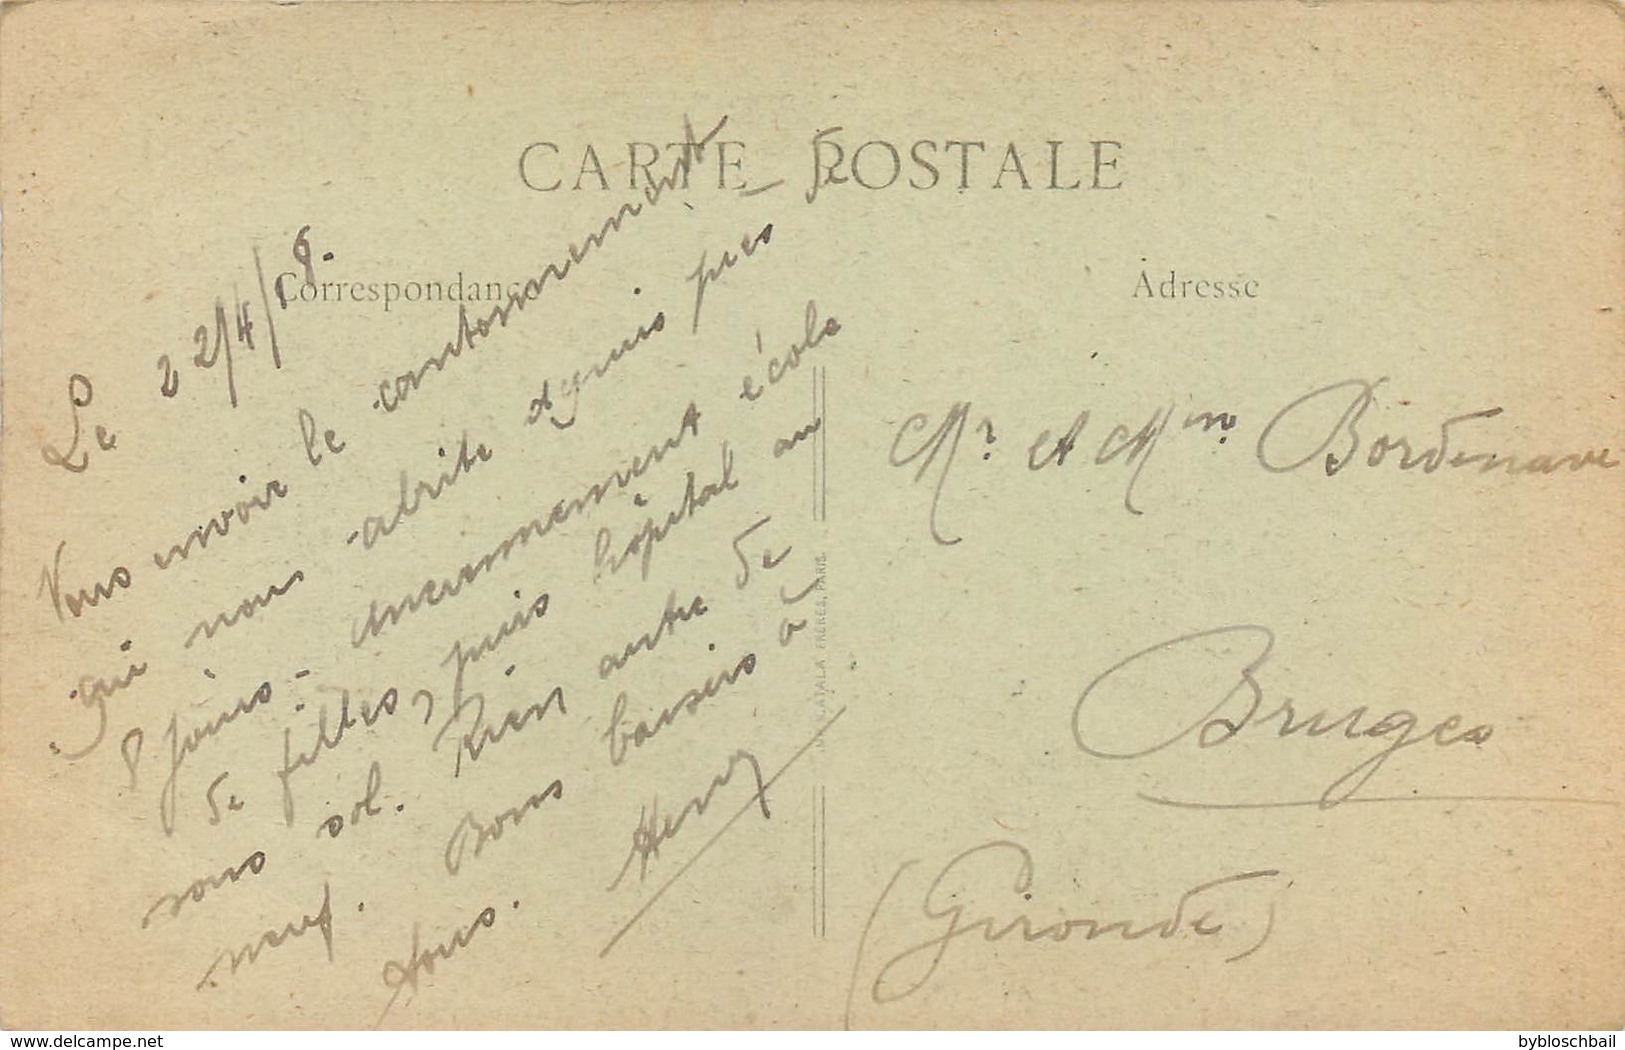 CARTE POSTALE
Correspondance
Adresse
Le 22/4/18.
Vous envoie le cantonnement
qui nous abrite depuis près de
8 jours - anciennement école
de filles, puis hôpital au
sous sol. Rien autre de
neuf. Bons baisers à
tous. Henry
Mr et Mme Bordenave
Bruges
(Gironde)
FRÈRES, PARIS
delcampe.net
bybloschbail